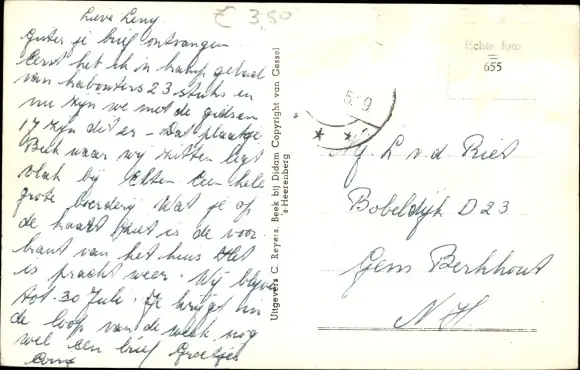 € 3,50
Lieve Leny
Gister je brief ontvangen
Eerst heb ik in kamp gehad
van kabouters 23 stuks en
nu zijn we met de gidsen
17 zijn dit er – Dat plaatje
Beek waar wij zitten ligt
vlak bij Elten Een hele
grote boerderij Wat je op
de kaart ziet is de voor
kant van het huis Het
is pracht weer. Wij blijven
tot 30 Juli. Je krijgt in
de loop van de week nog
wel een brief Groetjes
Corrie
Uitgevers C. Reyers, Beek bij Didam Copyright van Gessel
's-Heerenberg
Echte foto
655
Mej. L v.d Riet
Bobeldijk D 23
Gem Berkhout
N H.